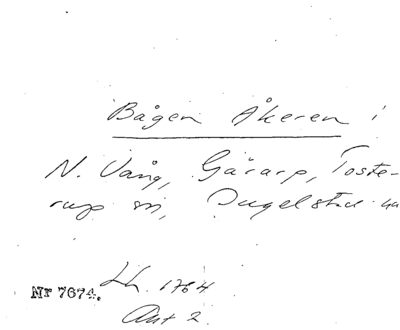 Bågen Åkeren i
N. Vång, Gärarp, Toste-
rup sn, Ingelstad hd
Lh. 1764
Nr 7674.
Akt 2